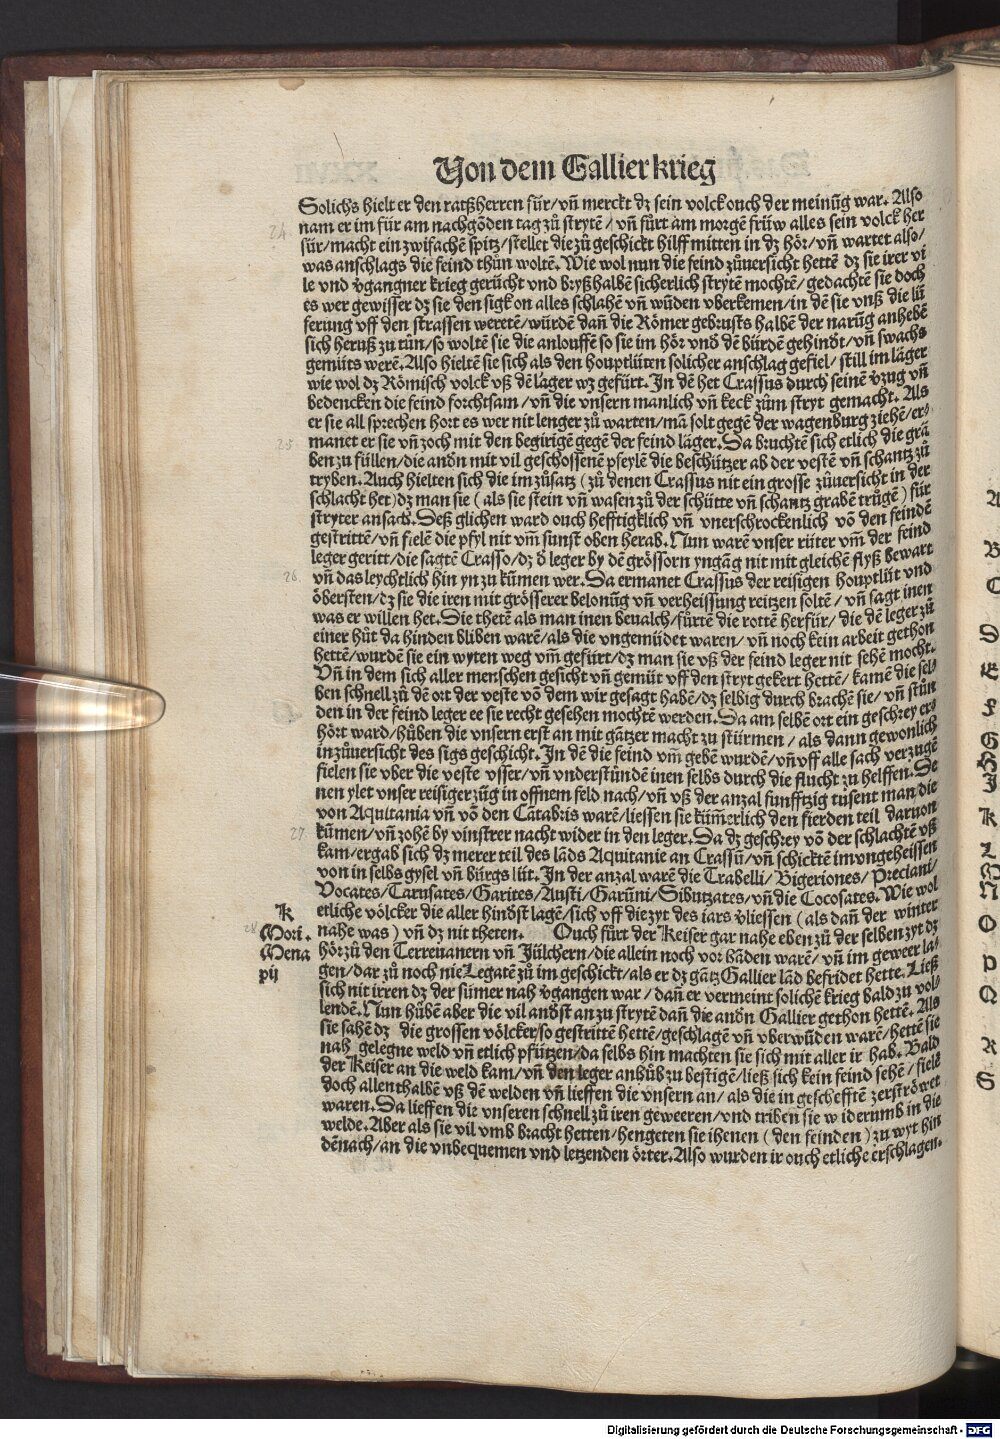 Von dem Gallier krieg
Solichs hielt er den ratßherren für/vñ merckt dz sein volck ouch der meinũg war. Also
nam er im für am nachgõden tag zů strytẽ/vñ fůrt am morgẽ frůw alles sein volck her
24
für/macht ein zwifachẽ spitz/stellet die zů geschickt hilff mitten in dz hõr/vñ wartet also/
was anschlags die feind thůn woltẽ. Wie wol nun die feind zůuersicht hettẽ dz sie irer vi
le vnd vgangner krieg gerücht vnd bryßhalbẽ sicherlich strytẽ mochtẽ/gedachtẽ sie doch
es wer gewisser dz sie den sigk on alles schlahẽ vñ wũden vberkemen/in dẽ sie vnß die lü
ferung vff den strassen weretẽ/würdẽ dañ die Rõmer gebrusts halbẽ der narũg anhebẽ
sich heruß zu tůn/so woltẽ sie die anlouffẽ so sie im hõr vnd dẽ bürdẽ gehindt/vñ swachs
gemůts werẽ. Also hieltẽ sie sich als den houptlüten solicher anschlag gefiel/still im lãger
wie wol dz Rõmisch volck vß dẽ lager wz gefürt. In dẽ het Crassus durch seinẽ vzug vñ
bedencken die feind forchtsam/vñ die vnsern manlich vñ keck zům stryt gemacht. Als
er sie all sprechen hort es wer nit lenger zů warten/mã solt gegẽ der wagenburg ziehẽ/er-
25
manet er sie vñ zoch mit den begirigẽ gegẽ der feind lãger. Da bruchtẽ sich etlich die grã
ben zu füllen/die andn mit vil geschossenẽ pfeylẽ die beschützer ab der vestẽ vñ schantz zů
tryben. Auch hielten sich die im zůsatz (zů denen Crassus nit ein grosse zůuersicht in der
schlacht het) dz man sie (als sie stein vñ wasen zů der schütte vñ schantz grabẽ trůgẽ) für
stryter ansach. Deß glichen ward ouch hefftigklich vñ vnerschrockenlich võ den feindẽ
gestrittẽ/vñ fielẽ die pfyl nit vm̃ sunst oben herab. Nun warẽ vnser rüter vm̃ der feind
leger geritt/die sagtẽ Crasso/dz d leger by dẽ grõssorn yngãg nit mit gleichẽ flyß bewart
26
vñ das leychtlich hin yn zu kũmen wer. Da ermanet Crassus der reisigen houptlüt vnd
õbersten/dz sie die iren mit grõsserer belonũg vñ verheissung reitzen soltẽ/vñ sagt inen
was er willen het. Sie thetẽ als man inen beualch/fůrtẽ die rottẽ herfür/die dẽ leger zů
einer hůt da hinden bliben warẽ/als die vngemüdet waren/vñ noch kein arbeit gethon
hettẽ/wurdẽ sie ein wyten weg vm̃ gefürt/dz man sie vß der feind leger nit sehẽ mocht.
Vñ in dem sich aller menschen gesicht vñ gemüt vff den stryt gekert hettẽ/kamẽ die sel-
ben schnell zů dẽ ort der veste võ dem wir gesagt habẽ/dz selbig durch brachẽ sie/vñ stůn
den in der feind leger ee sie recht gesehen mochtẽ werden. Da am selbẽ ort ein geschrey er-
hõrt ward/hůben die vnsern erst an mit gãtzer macht zu stürmen/als dann gewonlich
in zůuersicht des sigs geschicht. In dẽ die feind vm̃ gebẽ wurdẽ/vñ vff alle sach verzugẽ
fielen sie vber die veste vsser/vñ vnderstündẽ inen selbs durch die flucht zu helffen. De
nen ylet vnser reisiger züg in offnem feld nach/vñ vß der anzal funfftzig tůsent man die
von Aquitania vñ võ den Cãtabris warẽ/liessen sie küm̃erlich den fierden teil daruon
27
kũmen/vñ zohẽ by vinstrer nacht wider in den leger. Da dz geschrey võ der schlachtẽ vß
kam/ergab sich dz merer teil des lãds Aquitanie an Crassũ/vñ schicktẽ im vngeheissen
von in selbs gysel vñ bürgs lüt. In der anzal warẽ die Trabelli/Bigeriones/Preciani/
Vocates/Tarusates/Garites/Austi/Garũni/Sibutzates/vñ die Cocosates. Wie wol
etliche võlcker die aller hindst lagẽ/sich vff die zyt des iars vliessen (als dañ der winter
K
Mori.
Mena
pij
28
nahe was) vñ dz nit theten. Ouch fürt der Keiser gar nahe eben zů der selben zyt dz
hõr zů den Terreuanern vñ Jülchern/die allein noch vor hãden warẽ/vñ im geweer la-
gen/dar zů noch nie Legatẽ zů im geschickt/als er dz gãtz Gallier lãd befridet hette. Ließ
sich nit irren dz der sũmer nah vgangen war/dañ er vermeint solichẽ krieg bald zu vol-
lendẽ. Nun hüben aber die vil andst an zu strytẽ dañ die andn Gallier gethon hettẽ. Als
sie sahẽ dz die grossen võlcker/so gestrittẽ hettẽ/geschlagẽ vñ vberwũden warẽ/hettẽ sie
nah gelegne weld vñ etlich pfützen/da selbs hin machten sie sich mit aller ir hab. Bald
der Keiser an die weld kam/vñ den leger anhůb zu bestigẽ/ließ sich kein feind sehẽ/fielẽ
doch allenthalbẽ vß dẽ welden vñ lieffen die vnsern an/als die in geschefftẽ zerströwet
waren. Da lieffen die vnseren schnell zů iren geweeren/vnd triben sie widerumb in die
welde. Aber als sie vil vmb bracht hetten/hengeten sie ihenen (den feinden) zu wyt hin
dẽnach/an die vnbequemen vnd letzenden õrter. Also wurden ir ouch etliche erschlagen.
Digitalisierung gefördert durch die Deutsche Forschungsgemeinschaft - DFG